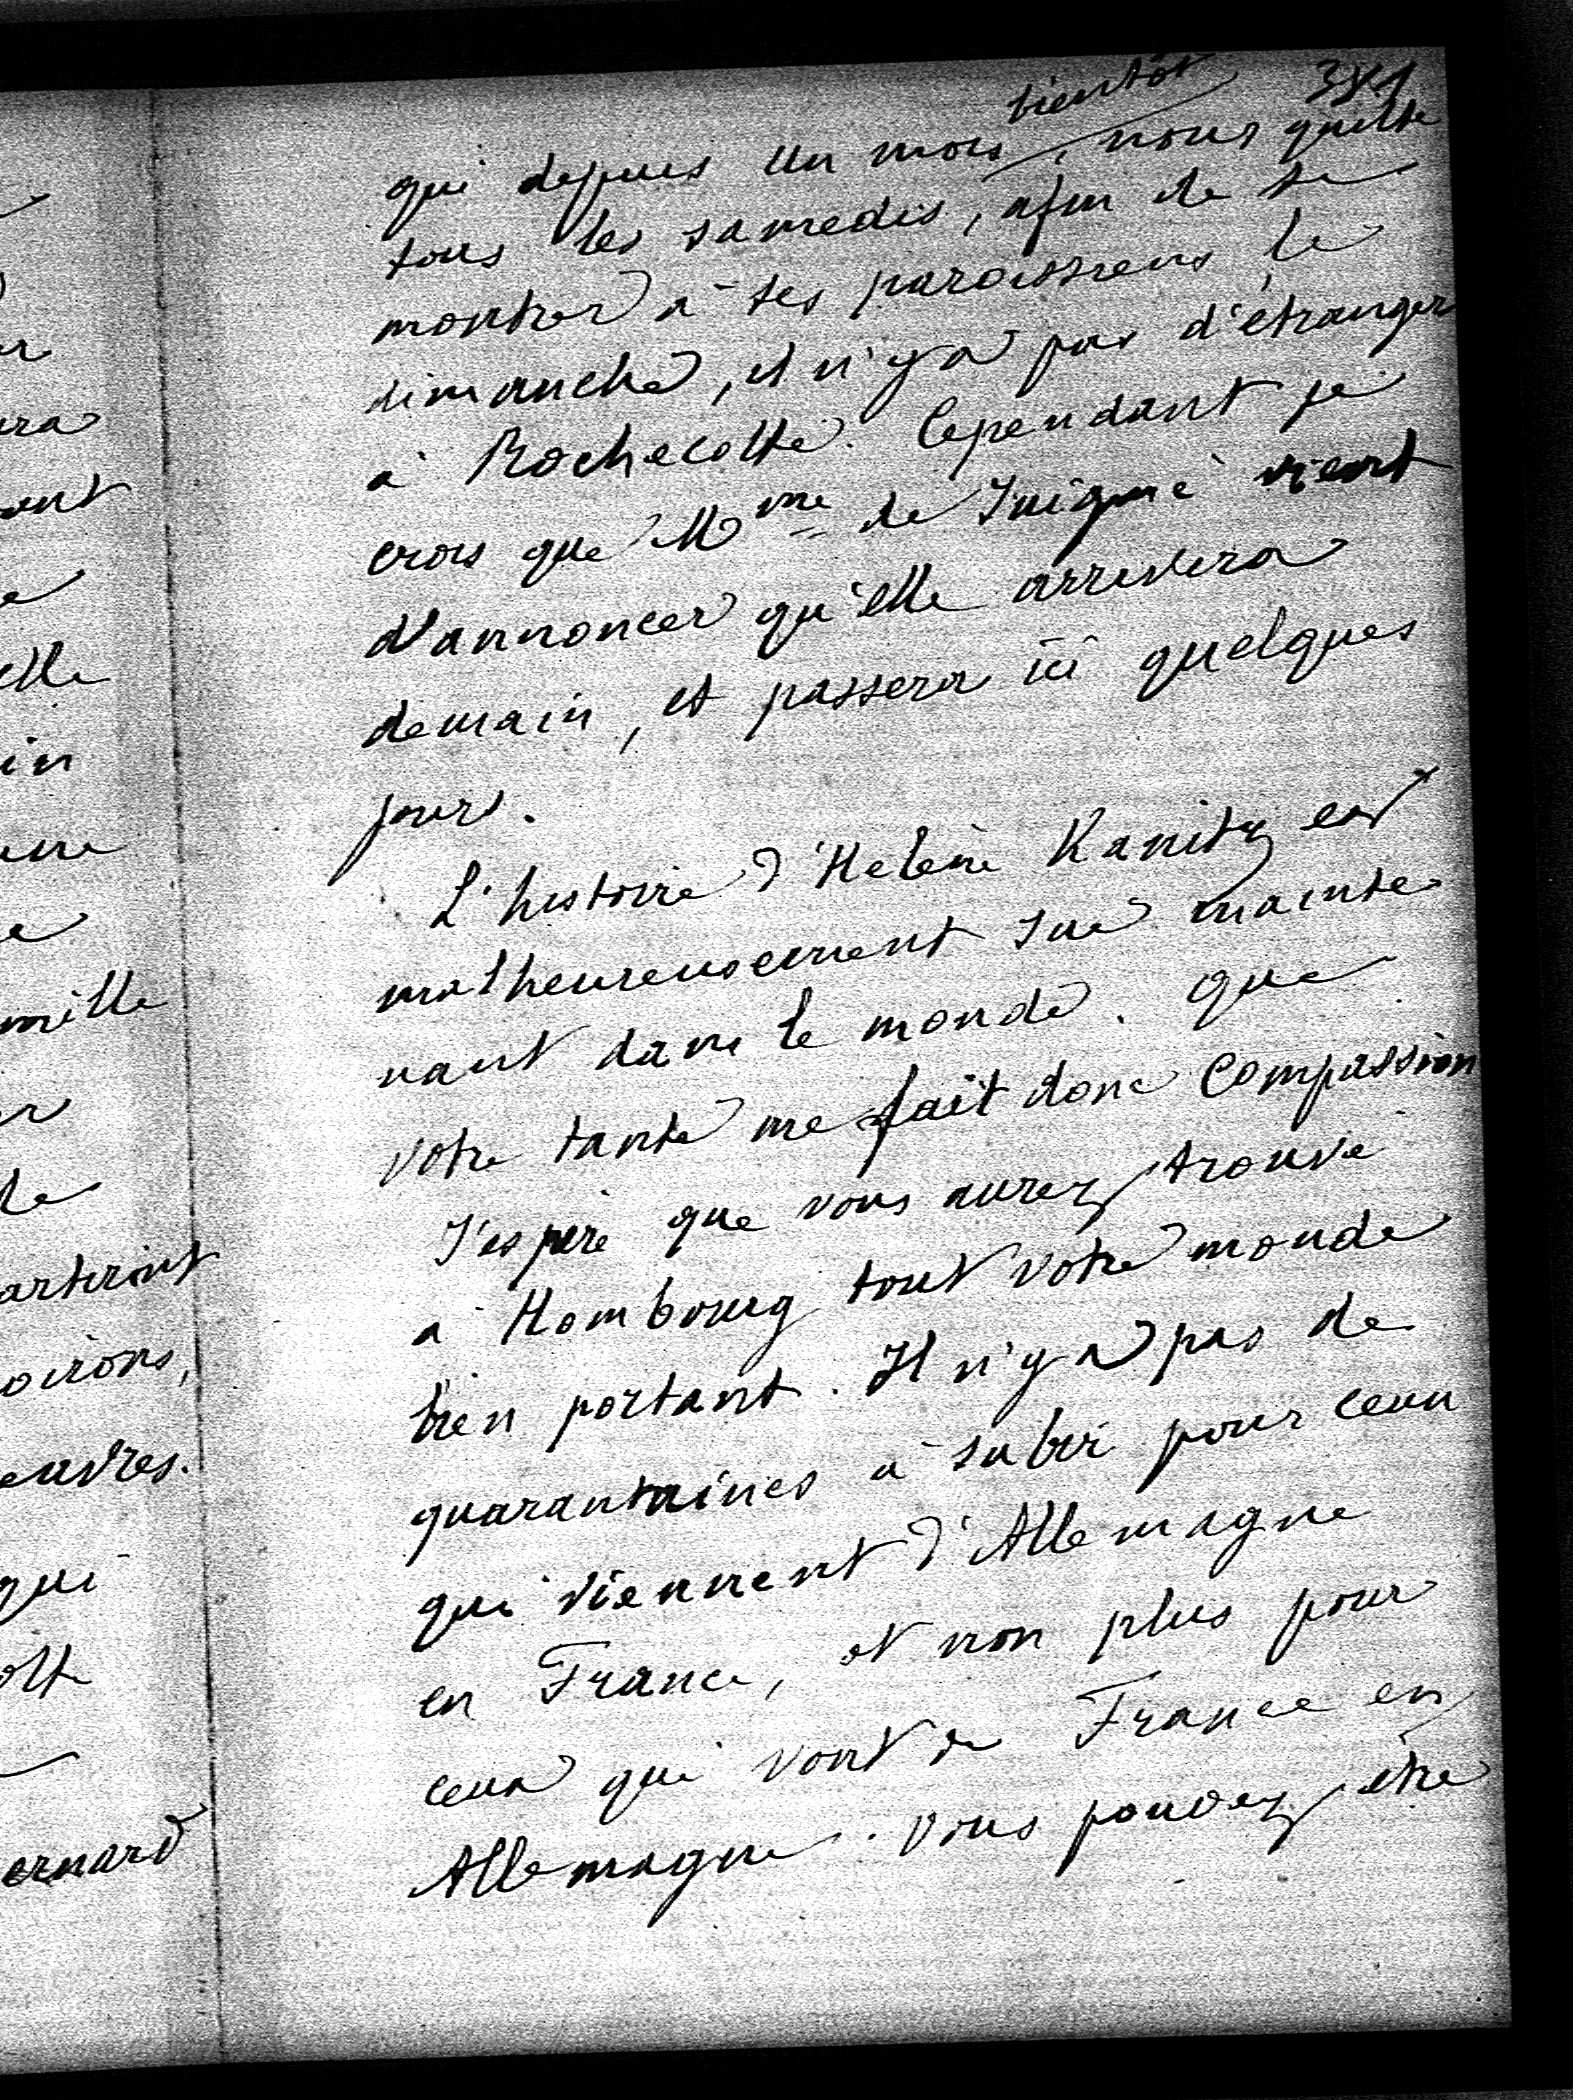 381
bientôt
qui depuis un mois, nous quitte
tous les samedis, afin de se
montrer à ses paroissiens le
dimanche, il n'y a pas d'étranger
à Rochecotte. Cependant je
crois que Mme de Juigné vient
d'annoncer qu'elle arrivera
demain, et passera ici quelques
jours.
L'histoire d'Helène Kanitz est
malheureusement sue mainte
nant dans le monde. Que
votre tante me fait donc compassion
J'espère que vous aurez trouvé
à Hombourg tout votre monde
bien portant. Il n'y a pas de
quarantaines à subir pour ceux
qui viennent d'Allemagne
en France, et non plus pour
ceux qui vont de France en
Allemagne. Vous pouvez être
ura
ent
elle
in
mille
de
artiront
oirons,
euvres.
qui
otte
ernard